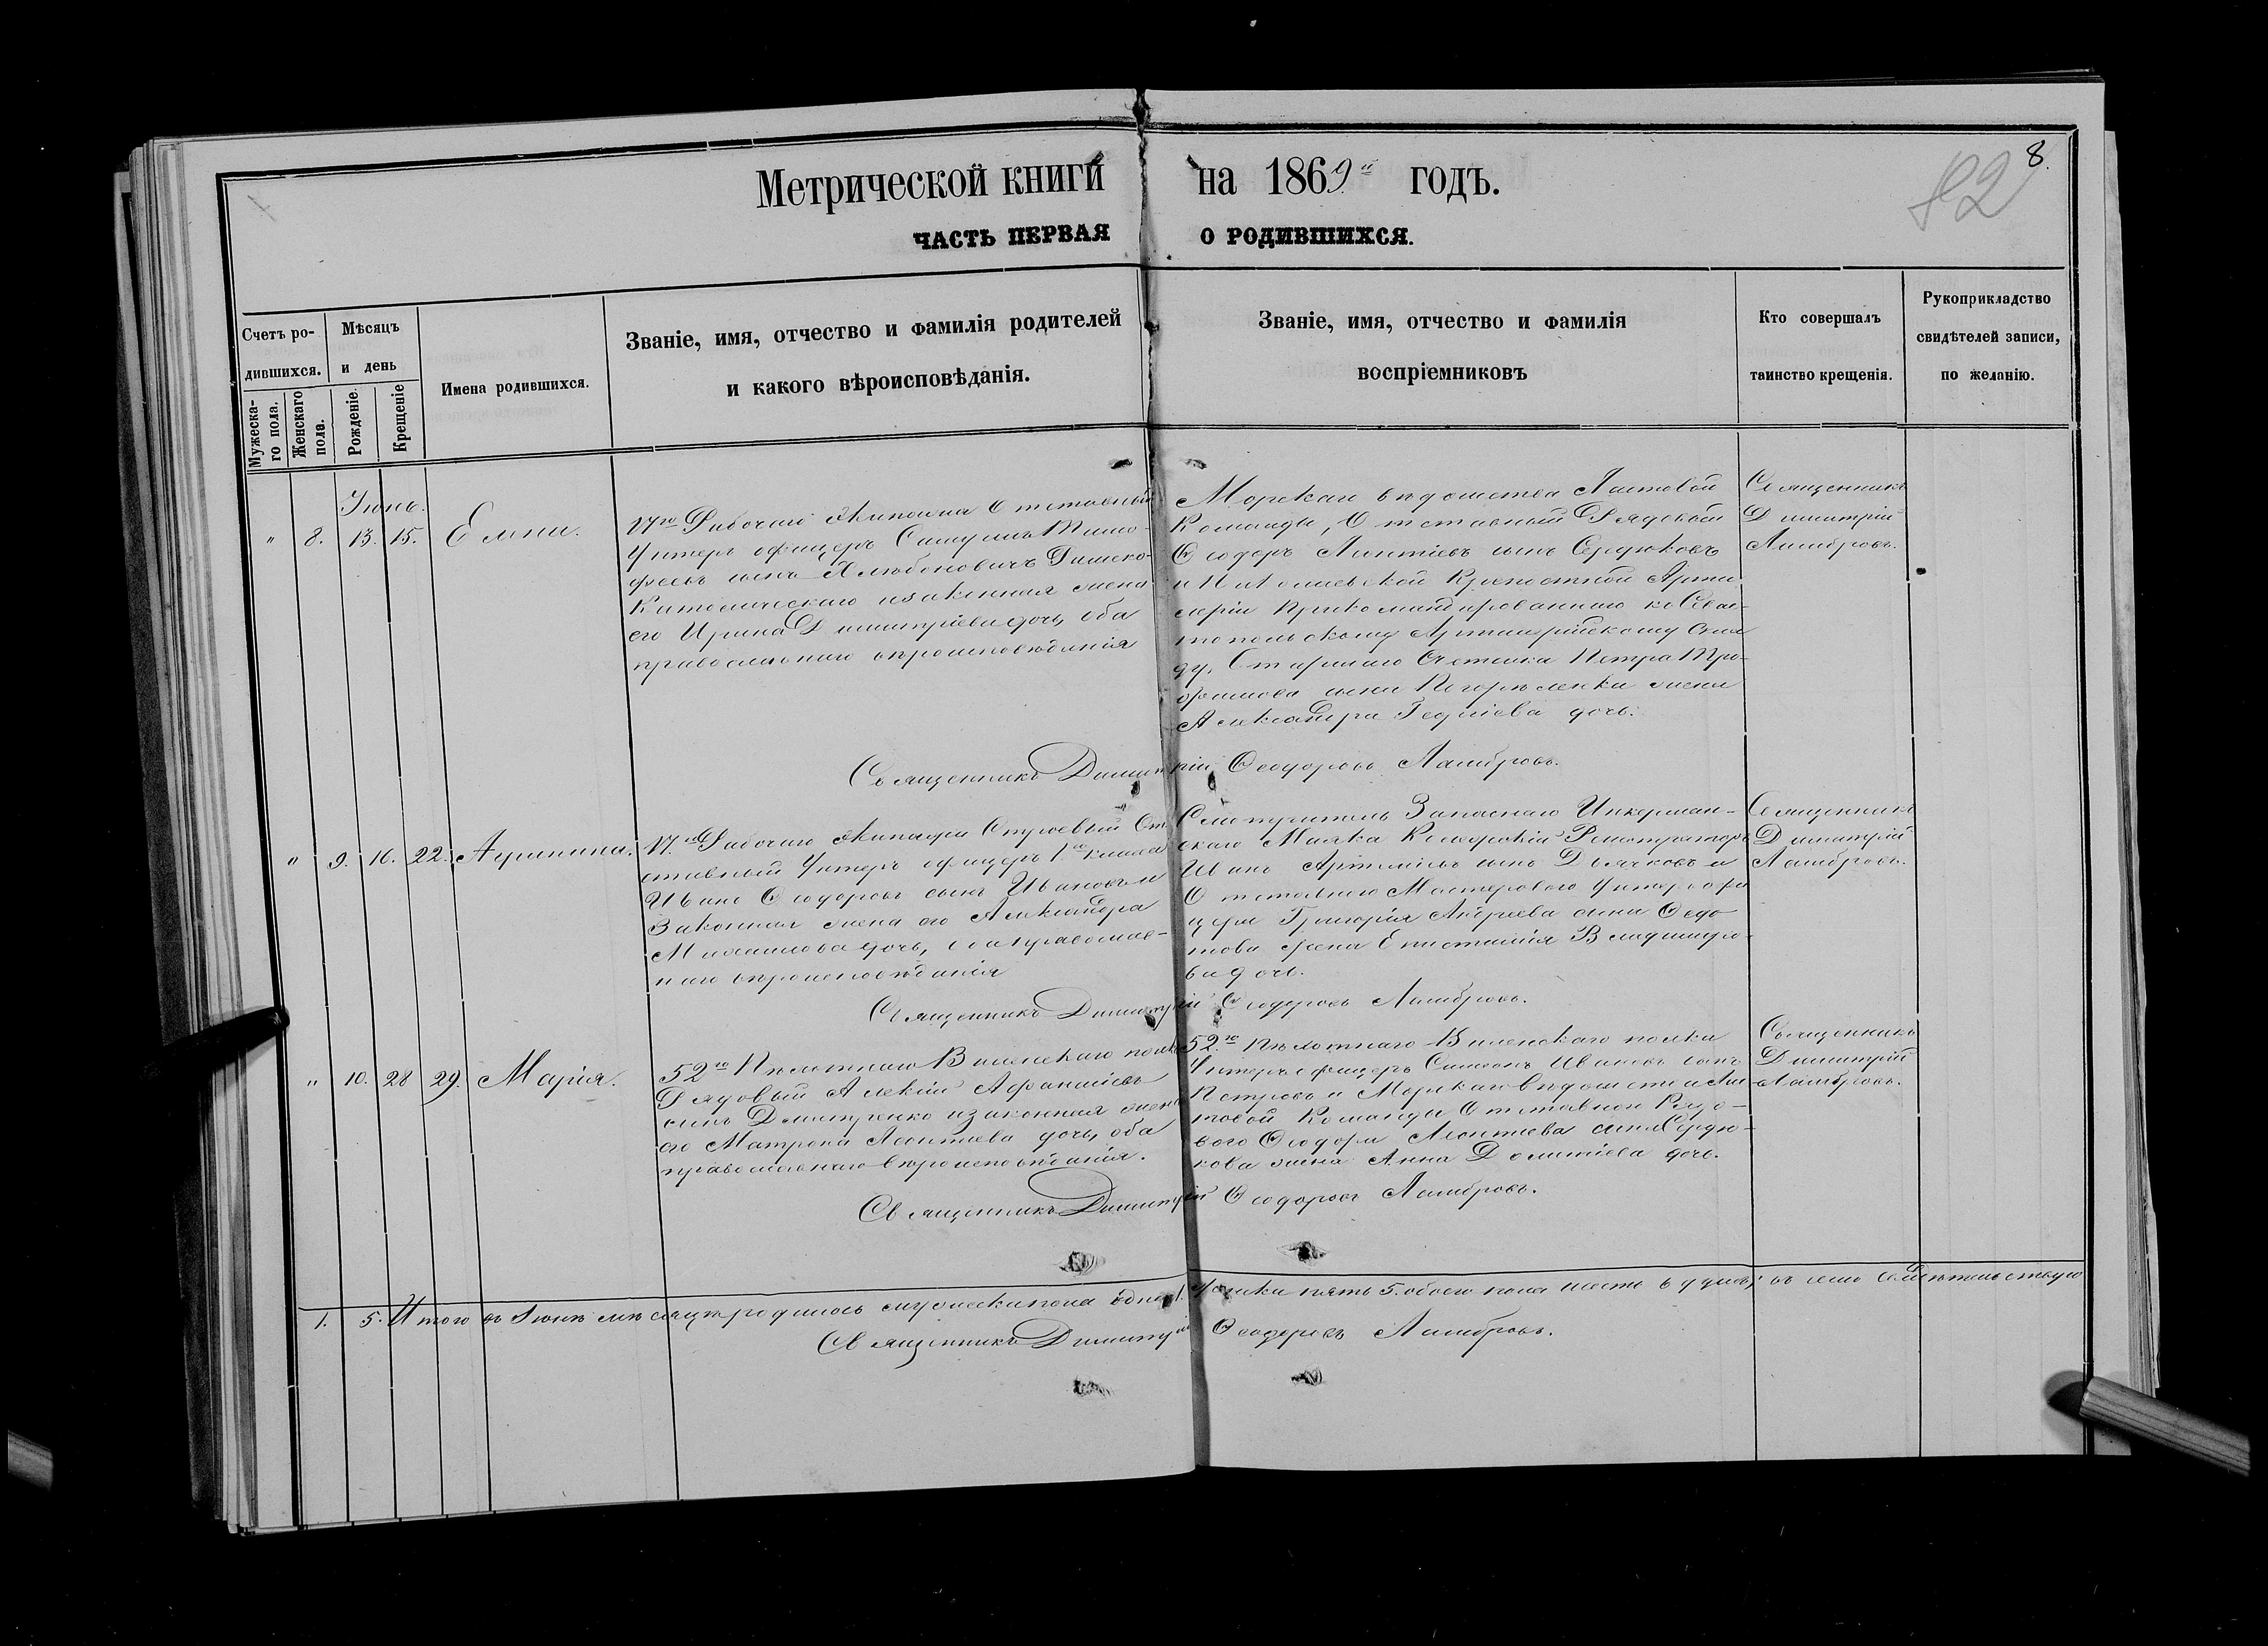 Метрической книги на 1869й годъ.
8.
82
ЧАСТЬ ПЕРВАЯ О РОДИВШИХСЯ.
Счетъ ро-
дившихся.
Мужеска-
го пола.
Женскаго
пола.
Мѣсяцъ
и день
Рожденіе.
Крещеніе
Имена родившихся.
Званіе, имя, отчество и фамилія родителей
и какого вѣроисповѣданія.
Званіе, имя, отчество и фамилія
воспріемниковъ
Кто совершалъ
таинство крещенія.
Рукоприкладство
свидѣтелей записи,
по желанію.
Іюнь.
" 8. 13. 15. Елена.
17го Рабочаго Экипажа Отставный
Унтеръ офицеръ Тимо-
феевъ сынъ
Католическаго и законная жена
его Ирина Димитріева дочь, оба
православнаго вѣроисповѣданія
Морскаго вѣдомства Ластовой
Команды, Отставный Рядовой
Ѳеодоръ Леонтіевъ сынъ Сердюковъ
и Николаевской Крѣпостной Арти
леріи Прикомандированнаго къ Севас-
топольскому Артилерійскому Скла
ду, Старшаго Петра Тро-
фимова сына жена
Александра дочь.
Священникъ
Димитрій
Ламбровъ.
Священникъ Димитрій Ѳеодоровъ Ламбровъ.
" 9. 16. 22. Акилина.
17.го Рабочаго Экипажа Строевый От
ставный Унтеръ офицеръ 1го класса
Иванъ Ѳеодоровъ сынъ Ивановъ и
Законная жена его Александра
Михаилова дочь, оба православ-
наго вѣроисповѣданія
Смотритель Запаснаго Инкерман-
скаго Маяка Колежскій Регистраторъ
Иванъ Артемьевъ сынъ Дьячковъ и
Отставнаго Мастероваго Унтеръ офи
цера Григорія Андреева сына Ѳедо
това жена Епистимія Владиміро-
ва дочь.
Священникъ
Димитрій
Ламбровъ.
Священникъ Димитрій Ѳеодоровъ Ламбровъ.
" 10. 28 29. Марія.
52го Пѣхотнаго Виленскаго полка
Рядовый Алексій Афанасіевъ
сынъ Дмитренко и законная жена
его Матрона Леонтіева дочь, оба
православнаго вѣроисповѣданія.
52.го Пѣхотнаго Виленскаго полка
Унтеръ офицеръ Симеонъ Ивановъ сынъ
Петровъ и Морскаго вѣдомства Лас
товой Команды Отставнаго Рядо-
ваго Ѳеодора Леонтіева сына Сердю-
кова жена Анна Дементіева дочь.
Священникъ
Димитрій
Ламбровъ.
Священникъ Димитрій Ѳеодоровъ Ламбровъ.
1. 5. Итого въ Іюнѣ мѣсяцѣ родилось мужеска пола одна 1. женска пять 5. обоего пола шесть 6 душъ; въ семъ свидѣтельствую
Священникъ Димитрій Ѳеодоровъ Ламбровъ.